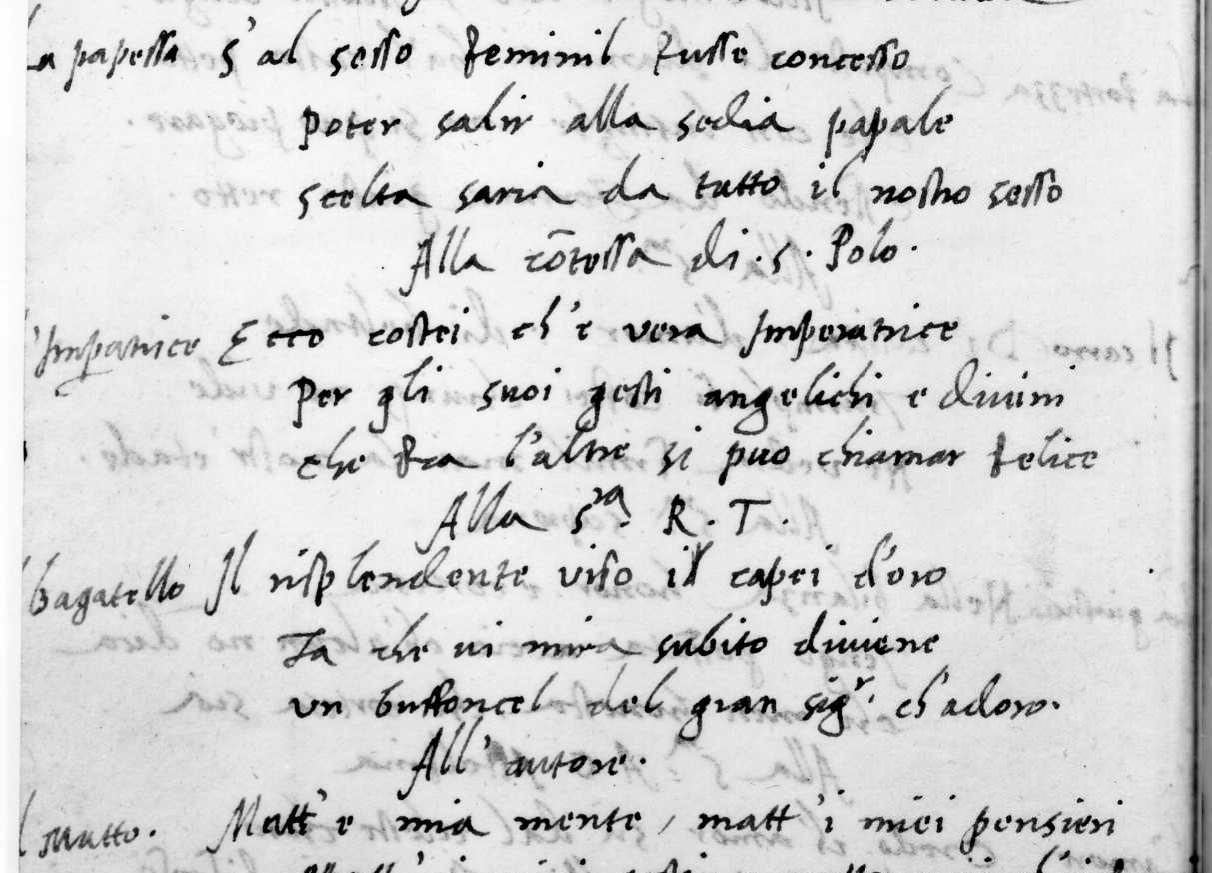 La papessa S'al sesso feminil fusse concesso
Poter salir alla sedia papale
scelta saria da tutto il nostro sesso
Alla cōtessa di . S . Polo .
Imperatrice Ecco costei ch'e vera Imperatrice
Per gli suoi gesti angelichi e divini
che fra l'altre si puo chiamar felice
Alla S.ra R . T .
bagatello Il risplendente viso i capei d'oro
Fa che vi mira subito diviene
un buffoncel del gran sig.r ch'adoro .
All' autore .
Matto . Matt' e mia mente , matt' i miei pensieri